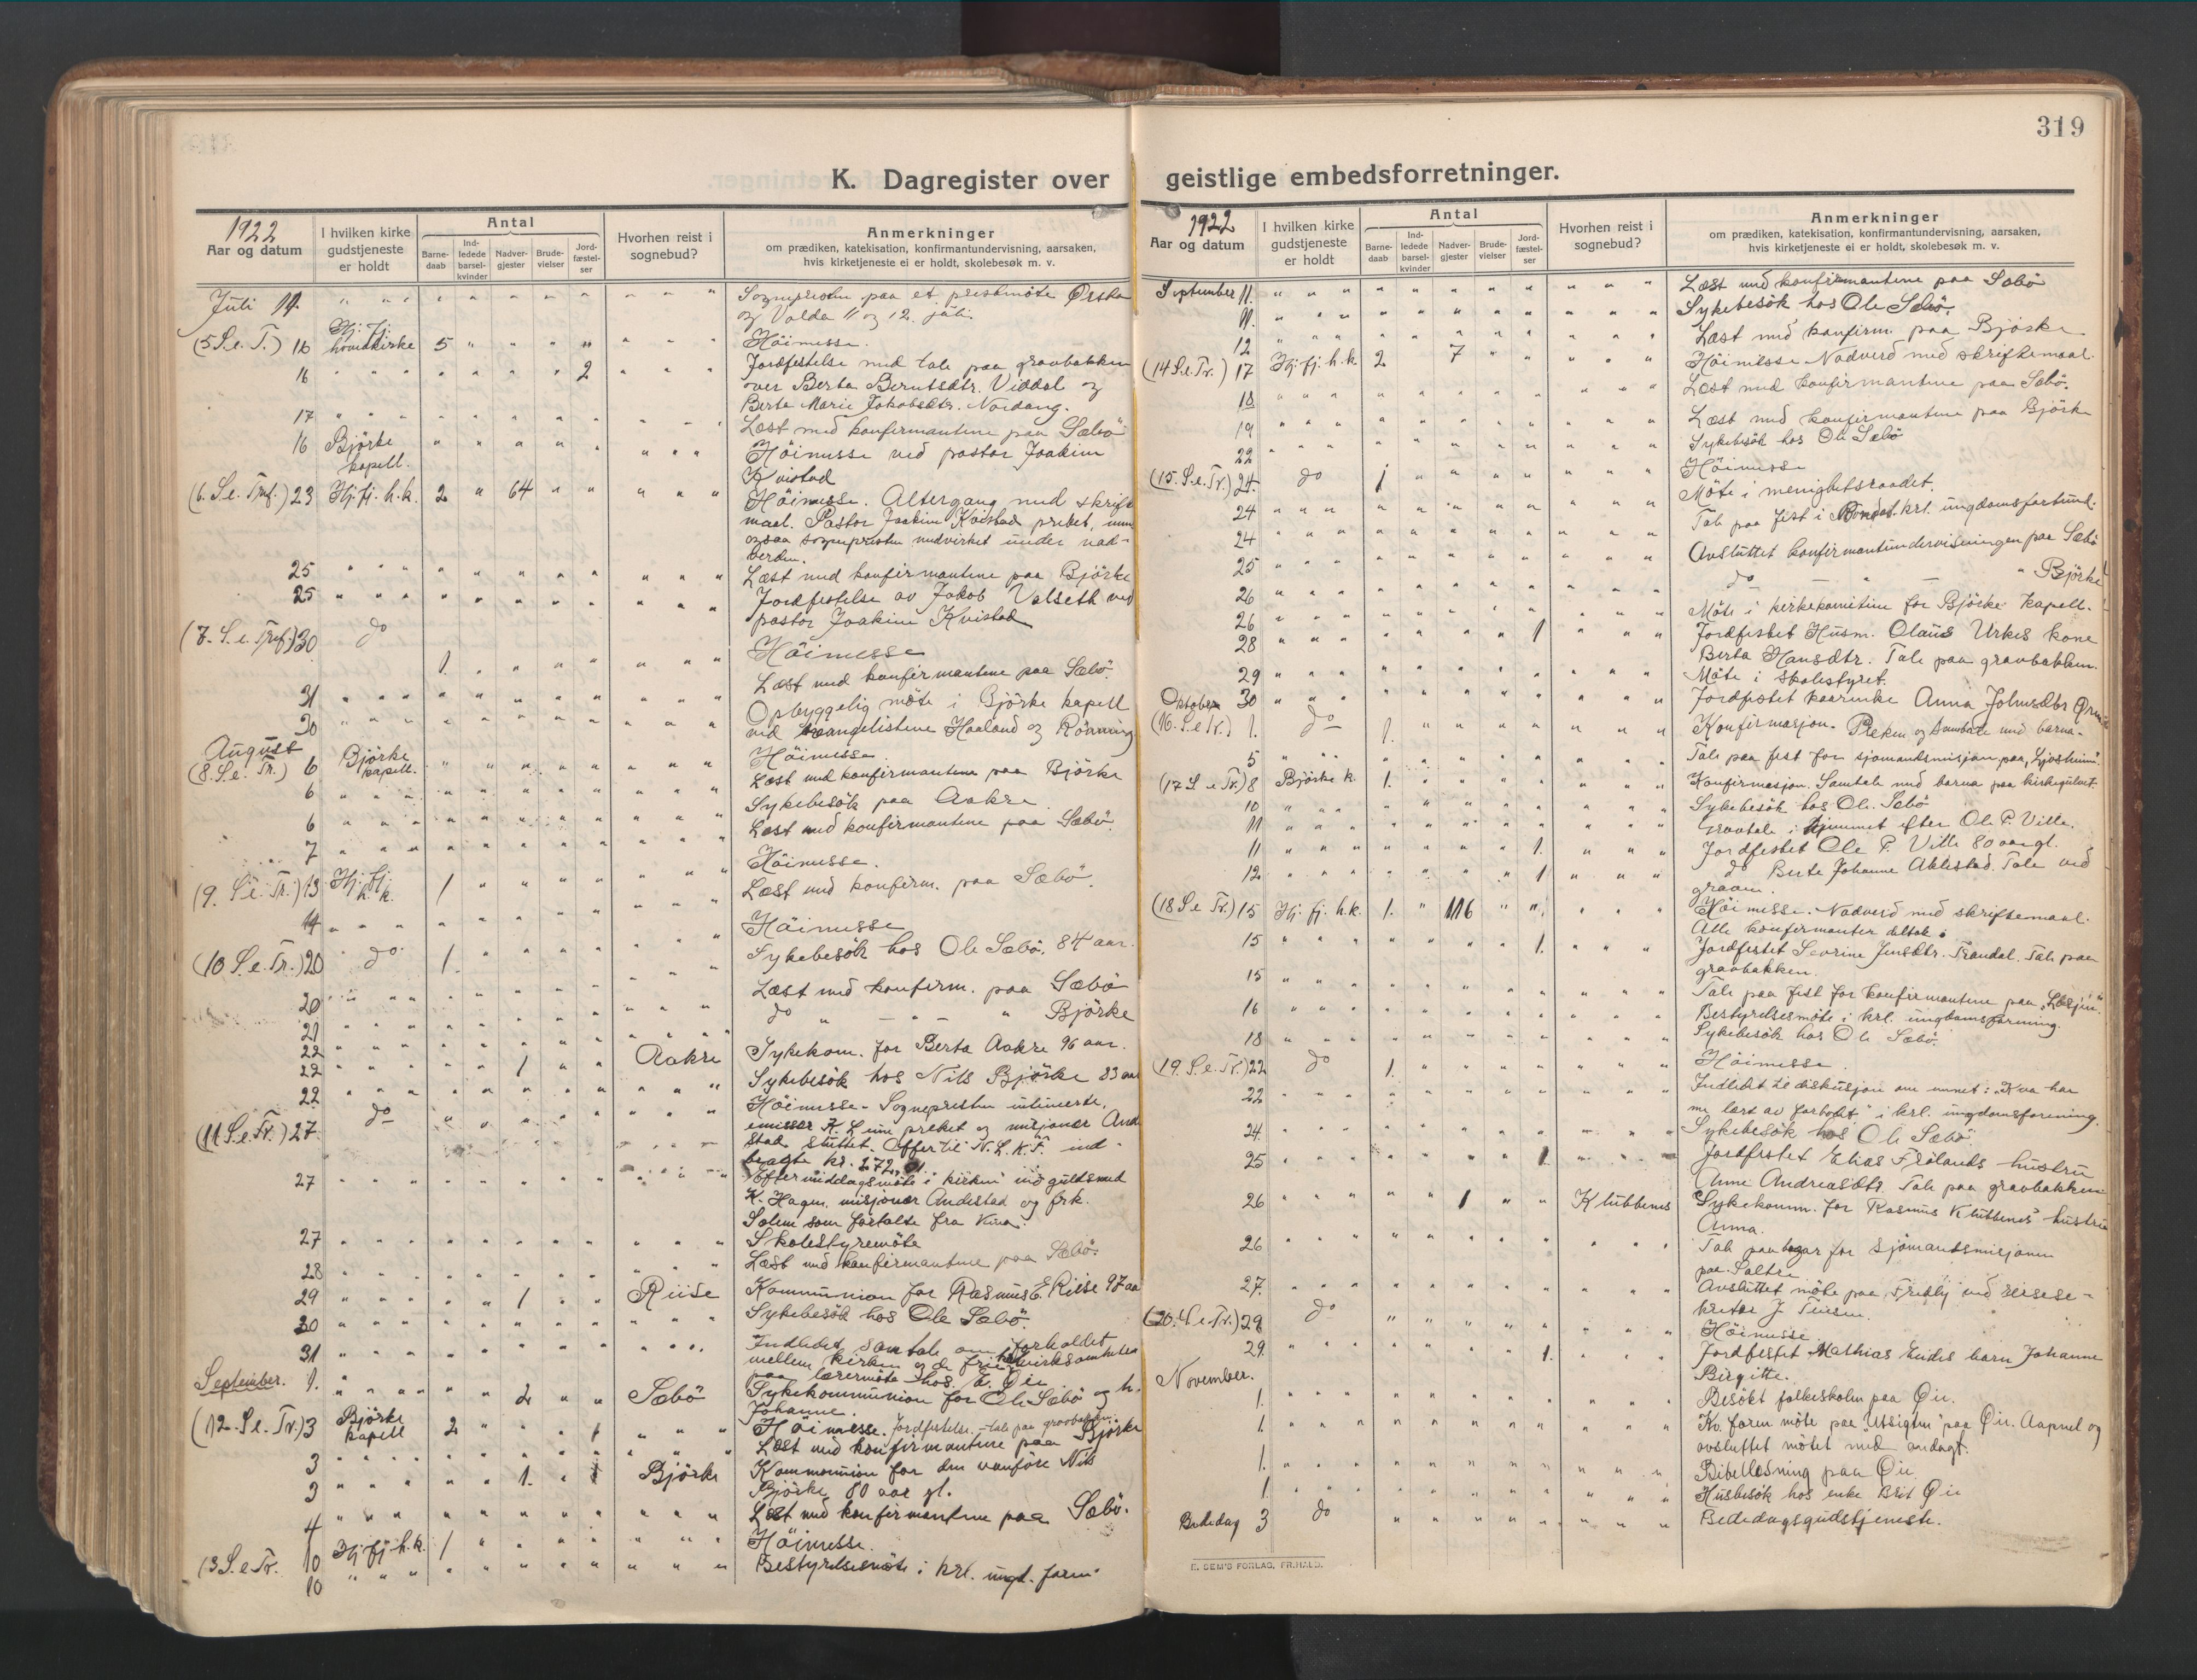 319
K. Dagregister over geistlige embedsforretninger.
1922
Aar og datum
I hvilken kirke gudstjeneste er holdt
Antal
Barne-daab
Ind-ledede barsel-kvinder
Nadver-gjester
Brude-vielser
Jord-fæstel-ser
Hvorhen reist i sognebud?
Anmerkninger
om prædiken, katekisation, konfirmantundervisning, aarsaken,
hvis kirketjeneste ei er holdt, skolebesøk m. v.
Juli 11. " " " " " " " " " " " Sognepresten paa et prestmöte Ørsta
og Volda 11 og 12. juli.
(5 S. e. T.) 16 Hj. fj. hovedkirke 5 " " " " " " " Höimesse.
16 " " " " " " " 2 " " " Jordfestelse med tale paa gravbakken
over Berta Berntsdtr. Viddal og
Berte Marie Jakobsdtr. Nordang.
17 " " " " " " " " Læst med konfirmantene paa Sæbö
16 Björke kapell. " " " " " " " " Höimesse ved pastor Joakim
Kvistad
(6. S. e. Tref.) 23 Hj. fj. h. k. 2 " 64 " " " " " Höimesse. Altergang med skrifte
maal. Pastor Joakim Kvistad preket, men
ogsaa sognepresten medvirket under nad-
verden.
25 " " " " " " " " Læst med konfirmantene paa Björke
25 " " " " " " " " Jordfestelse av Jakob Valseth ved
pastor Joakim Kvistad
(7. S. e. Tref.) 30 do 1. " " " " " " " Höimesse
31 " " " " " " " " Læst med konfirmantene paa Sæbö.
30 " " " " " " " " Opbyggelig möte i Björke kapell
ved evangelistene Haaland og Rönning
August
(8. S. e. Tr.) 6 Björke kapell. " " " " " " " " Höimesse.
6 " " " " " " " " Læst med konfirmantene paa Björke
6 " " " " " " " " Sykebesök paa Aakre.
7 " " " " " " " " Læst med konfirmantene paa Sæbö
(9. S. e. Tr.) 13 Hj. fj. h. k. 1 " " " " " " " Höimesse.
14 " " " " " " " " Læst med konfirm. paa Sæbö.
(10 S. e. Tr.) 20 do 1. " " " " " " " Höimesse
20 " " " " " " " " Sykebesök hos Ole Sæbö. 84 aar.
21 " " " " " " " " Læst med konfirm. paa Sæbö
22 " " " " " " " " do " — " — " Björke
22 " " " " " 1 " " Aakre Sykekom. for Berta Aakre 96 aar.
22 " " " " " " " " Sykebesök hos Nils Björke 83 aar
(11 S. e. Tr.) 27. do " " " " " " " " Höimesse - Sognepresten intimerte,
emissær K. Leine preket og misjonær And
stad sluttet. Offer til N. L. K. F. ind-
bragte kr. 272,
27 " " " " " " " " Eftermiddagsmöte i kirken ved guldsmed
K. Hagen, misjonær Andestad og frk.
Solem som fortalte fra Kina.
27 " " " " " " " " Skolestyremöte
28 " " " " " " " " Læst med konfirmantene paa Sæbö.
29 " " " " " 1 " " Riise Kommunion for Rasmus E. Riise 97 aar
30 " " " " " " " " Sykebesök hos Ole Sæbö.
31 " " " " " " " " Indledet samtale om forholdet
mellem kirken og de frie virksomheter
paa lærermöte hos E. Øie
September. 1. " " " " " 2 " " Sæbö Sykekommunion for Ole Sæbö og h.
Johanne.
(12. S. e. Tr.) 3 Björke kapell 2 " " " 1 " " " Höimesse. Jordfestelse. - tale paa gravbakken.
3 " " " " " " " " Læst med konfirmantene paa Björke
3 " " " " " 1. " Björke Kommunion for den vanföre Nils
Björke 80 aar gl.
4 " " " " " " " " Læst med konfirmantene paa Sæbö.
13 S. e. Tr. 10 Hj. fj. h. k. 1 " " " " " " " Höimesse.
10 " " " " " " " " Bestyrelsesmöte i krl. ungd. foren.
1922
Aar og datum
I hvilken kirke gudstjeneste er holdt
Antal
Barne-daab
Ind-ledede barsel-kvinder
Nadver-gjester
Brude-vielser
Jord-fæstel-ser
Hvorhen reist i sognebud?
Anmerkninger
om prædiken, katekisation, konfirmantundervisning, aarsaken,
hvis kirketjeneste ei er holdt, skolebesøk m. v.
September 11. " " " " " " " " Læst med konfirmantene paa Sæbö
11. " " " " " " " " Sykebesök hos Ole Sæbö.
12 " " " " " " " " Læst med konfirm. paa Björke
(14 S. e. Tr.) 17 Hj. fj. h. k. 2 7 " " " " " Höimesse Nadverd med skriftemaal.
18 " " " " " " " " Læst med konfirmantene paa Sæbö.
19 " " " " " " " " Læst med konfirmantene paa Björke
22 " " " " " " " " Sykebesök hos Ole Sæbö
(15. S. e. Tr.) 24. do 1 " " " " " " " Höimesse
24 " " " " " " " " Möte i menighetsraadet.
24 " " " " " " " " Tale paa fest i krl. ungdomsforbund.
25 " " " " " " " " Avsluttet konfirmantundervisningen paa Sæbö
26 " " " " " " " " do — " — " Björke
26 " " " " " " " " Möte i kirkekomiteen for Björke kapell.
28 " " " " " " " 1 " " " Jordfestet Husm. Olaus Urkes kone
Berta Hansdtr. Tale paa gravbakken.
29 " " " " " " " " Möte i skolestyret.
30 " " " " " " " " Jordfestet kaarenke Anna Johnsdtr
Oktober
(16. S. e. Tr.) 1. do 1. " " " " " " " Konfirmasjon. Preken og samtale med barna.
5 " " " " " " " " Tale paa fest for sjømandsmisjon paa "Ljosheim".
(17 S. e Tr.) 8 Björke k. 1. " " " " " " " Konfirmasjon. Samtale med barna paa kirkegulvet.
10 " " " " " " " " Sykebesök hos Ole Sæbö
11 " " " " " " " " Gravtale i hjemmet efter Ole P. Ville.
11 " " " " " " " 1. " " " Jordfestet Ole P. Ville 80 aar gl.
12 " " " " " " " 1 " " " do Berte Johanne Aklestad. Tale ved
graven.
(18 S. e Tr.) 15 Hj. fj. h. k. 1. " 116 " " " " " Höimesse. Nadverd med skriftemaal.
Alle konfirmanter deltok.
15 " " " " " " " 1. " " " Jordfestet Severine Jensdtr. Trandal. Tale paa
gravbakken.
15 " " " " " " " " Tale paa fest for konfirmantene paa "Losjen".
16 " " " " " " " " Bestyrelsesmöte i krl. ungdomsforening.
18 " " " " " " " " Sykebesök hos Ole Sæbö.
(19. S. e. Tr.) 22 do 1. " " " " " " " Höimesse.
22 " " " " " " " " Indledet til diskusjon om emnet: "Kva har
me lært av forbodet." i krl. ungdomsforening.
24. " " " " " " " " Sykebesök hos Ole Sæbö.
25 " " " " " " " 1. " " " Jordfestet Elias Frölands hustru
Anne Andreasdtr. Tale paa gravbakken
26 " " " " " 1 " " Klubbenes Sykekomm. for Rasmus Klubbenes' hustru
Anna.
26 " " " " " " " " Tale paa bazar for sjømandsmisjonen
paa Saltre
27. " " " " " " " " Avsluttet möte paa "Fredly" ved reisese-
kretær J. Tiersen.
(20. S. e. Tr.) 29 do " " " " " " " " Höimesse.
29. " " " " " " " 1. " " " Jordfestet Mathias Endes barn Johanne
Birgitte.
November.
1. " " " " " " " " Besökt folkeskolen paa Øie.
1. " " " " " " " " Kv. foren möte paa "Utsigten" paa Øie. Aapnet og
avsluttet mötet med andagt.
1. " " " " " " " " Bibellesning paa Øie.
1 " " " " " " " " Husbesök hos enke Brit Øie
Bededag 3 do " " " " " " " " Bededagsgudstjeneste.
E. SEM'S FORLAG, FR.HALD.